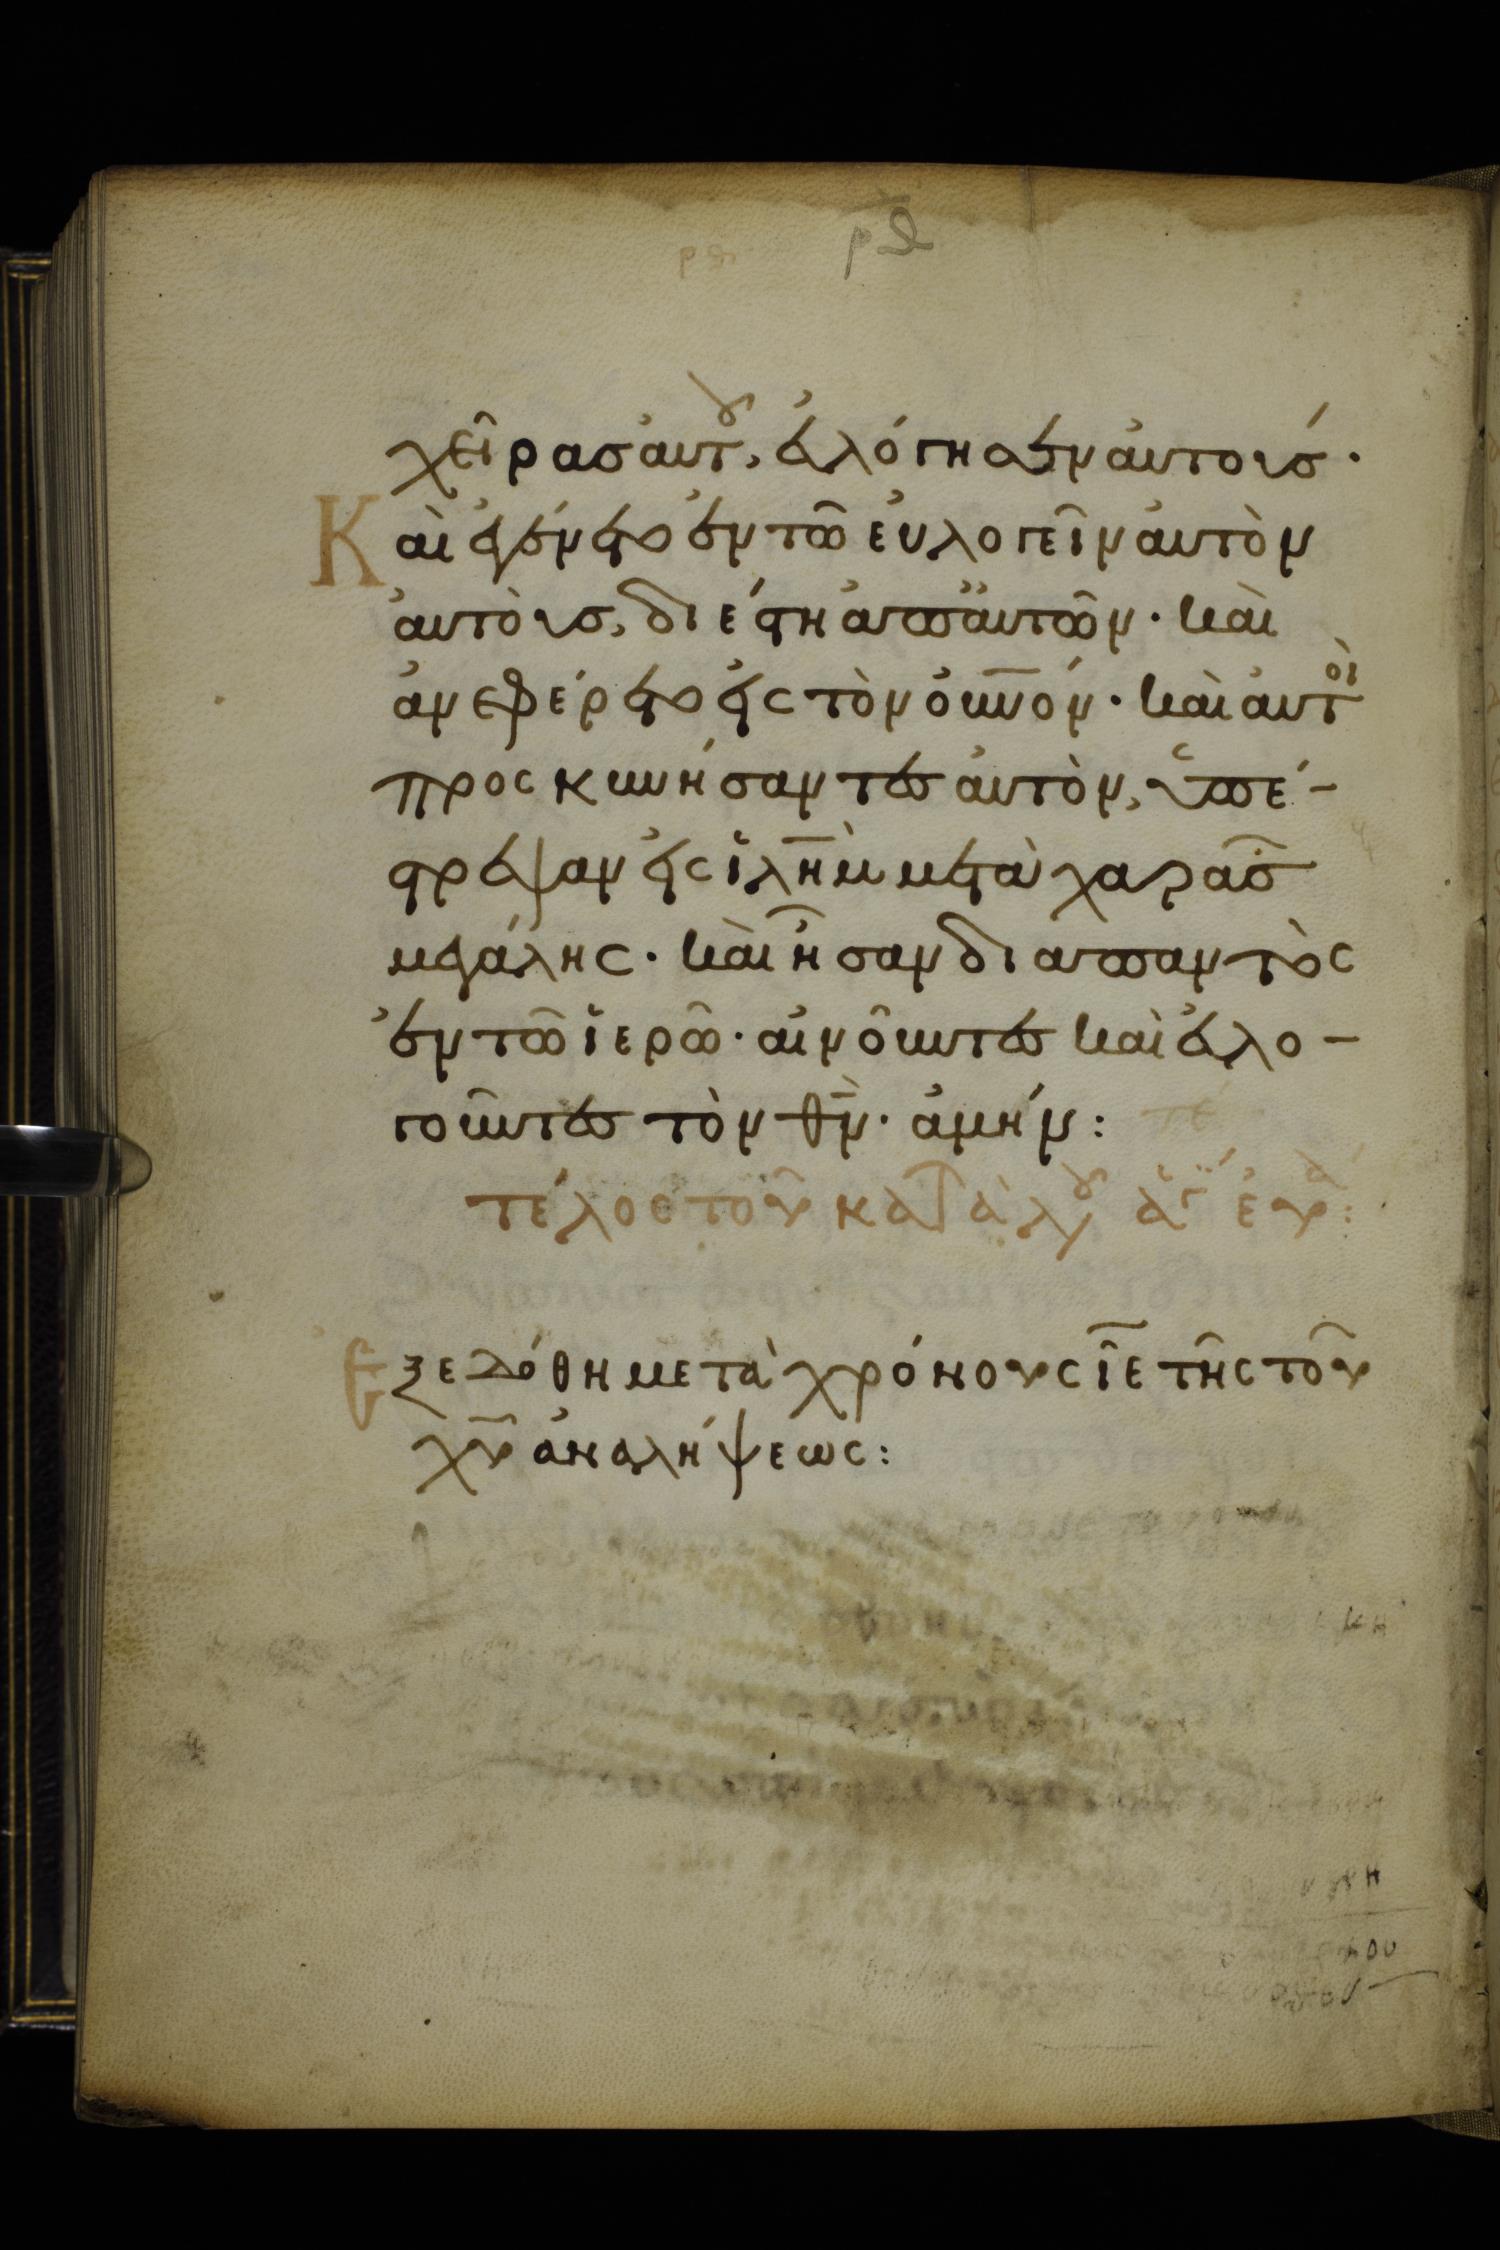 χεῖρας ἀυτοῦ, ἐυλόγησεν ἀυτούς·
Καὶ ἐγένετο ἐν τῶ ἐυλογεῖν ἀυτὸν
ἀυτοὺς, διέστη ἀπ' ἀυτῶν· καὶ
ἀνεφέρετο εἰς τὸν ὀυ̅νο̅ν· καὶ ἀυτοὶ
προσκυνήσαντες ἀυτὸν, ὑπέ-
στρεψαν εἰς ἱλ̅ὴ̅μ̅ μετὰ χαρᾶς
μεγάλης· καὶ ἦσαν διαπαντὸς
ἐν τῶ ἱερῶ· αἰνοῦντες καὶ ἐυλο-
γοῦντες τὸν θ̅ν̅· ἀμήν:
τέλος τοῦ κατὰ λου ἁγ ἐυα:
Εξεδόθη μετὰ χρόνους ι̅ε̅ τῆς τοῦ
χ̅υ̅ ἀναλήψεως: